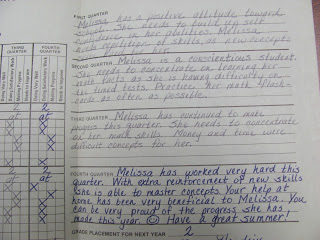 FIRST QUARTER
Melissa has a positive attitude toward
school. She needs to build up self
confidence in her abilities. Melissa
needs repetition of skills, as new concepts
for her.
SECOND QUARTER Melissa is a conscientious student.
She needs to concentrate on learning her
math facts as she is having difficulty on
the timed tests. Practice her math "flash-
cards as often as possible.
THIRD QUARTER Melissa has continued to make
progress this quarter. She needs to concentrate
on her math skills. Money and time were
difficult concepts for her.
FOURTH QUARTER Melissa has worked very hard this
quarter. With extra reinforcement of new skills
she is able to master concepts. Your help at
home has been very beneficial to Melissa. You
can be very proud of the progress she has
made this year. ☺ Have a great summer!
GRADE PLACEMENT FOR NEXT YEAR 2
THIRD QUARTER
FOURTH QUARTER